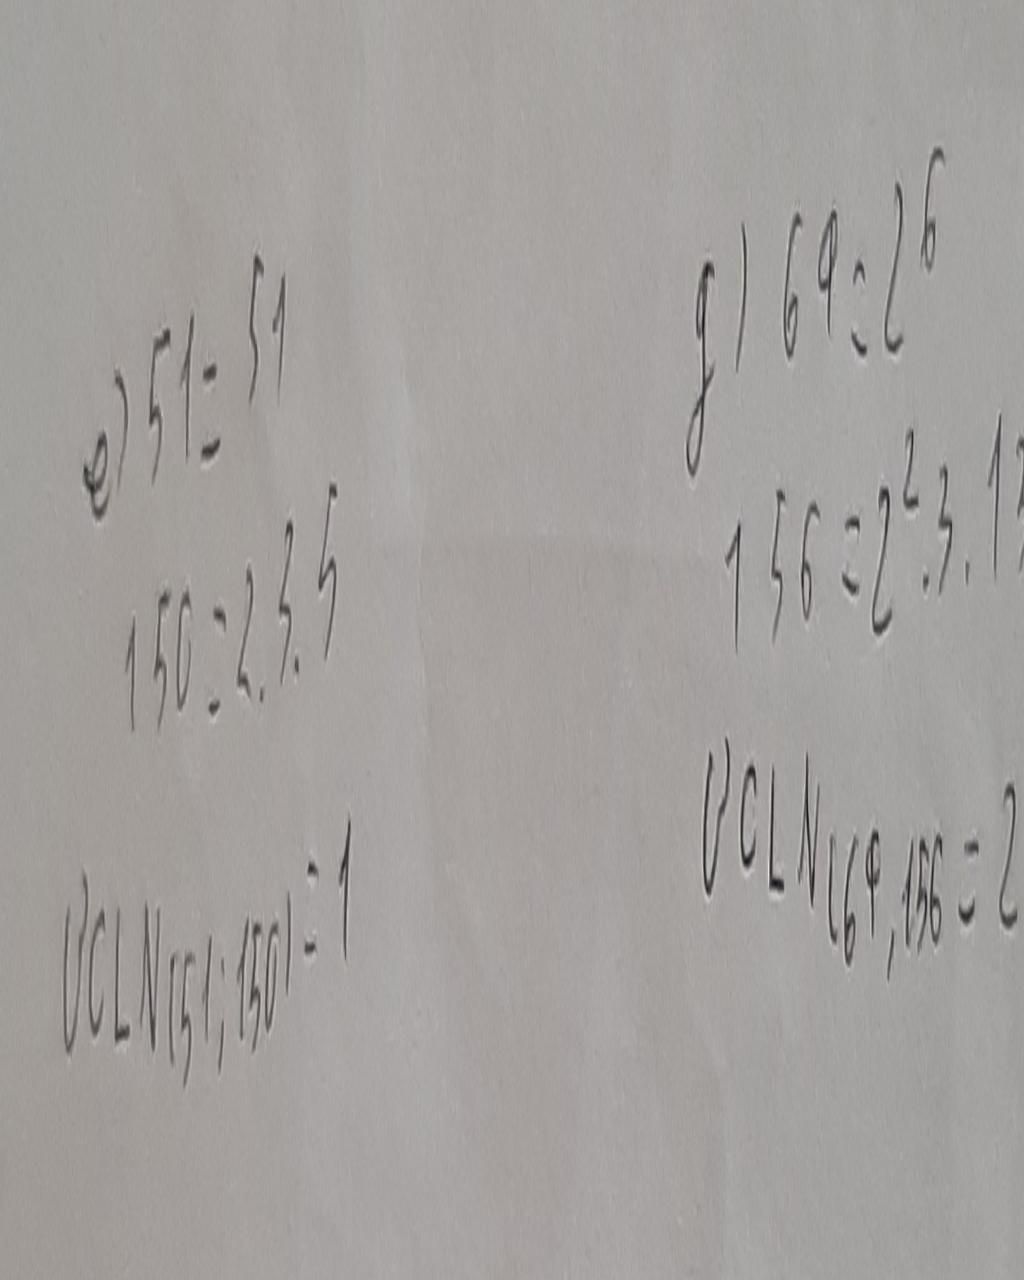 e) 51 = 51
150 = 2.3.5
ƯCLN(51;150) = 1
g) 64 = 2⁶
156 = 2².3.13
ƯCLN(64,156 = 2